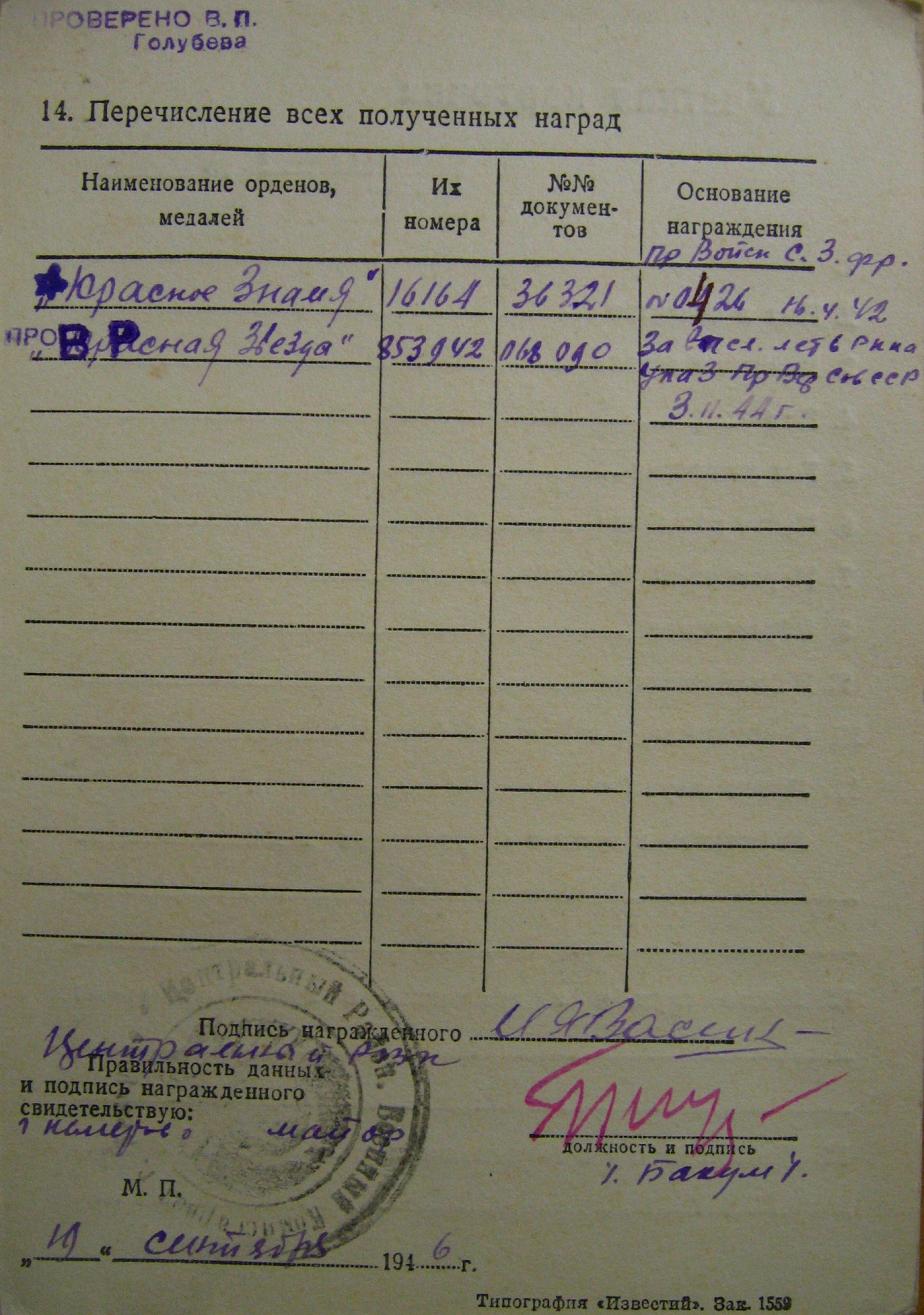 ПРОВЕРЕНО В. П.
Голубева
14. Перечисление всех полученных наград
Наименование орденов, медалей
Их номера
№№ докумен-тов
Основание награждения
Пр Войск С. З. фр.
„Красное Знамя" 16164 36321 №0426 16.4.42
ПРО В Р
„Красная Звезда" 853942 068090 За высл. лет в РККА
Указ Пр Вр Сов ССР
3.11.44 г.
Подпись награжденного
Центральный РВК
Правильность данных
и подпись награжденного
свидетельствую:
майор
должность и подпись
М. П.
Центральный Рай. Военный
„19" сентября 1946 г.
Типография «Известий». Зак. 1559